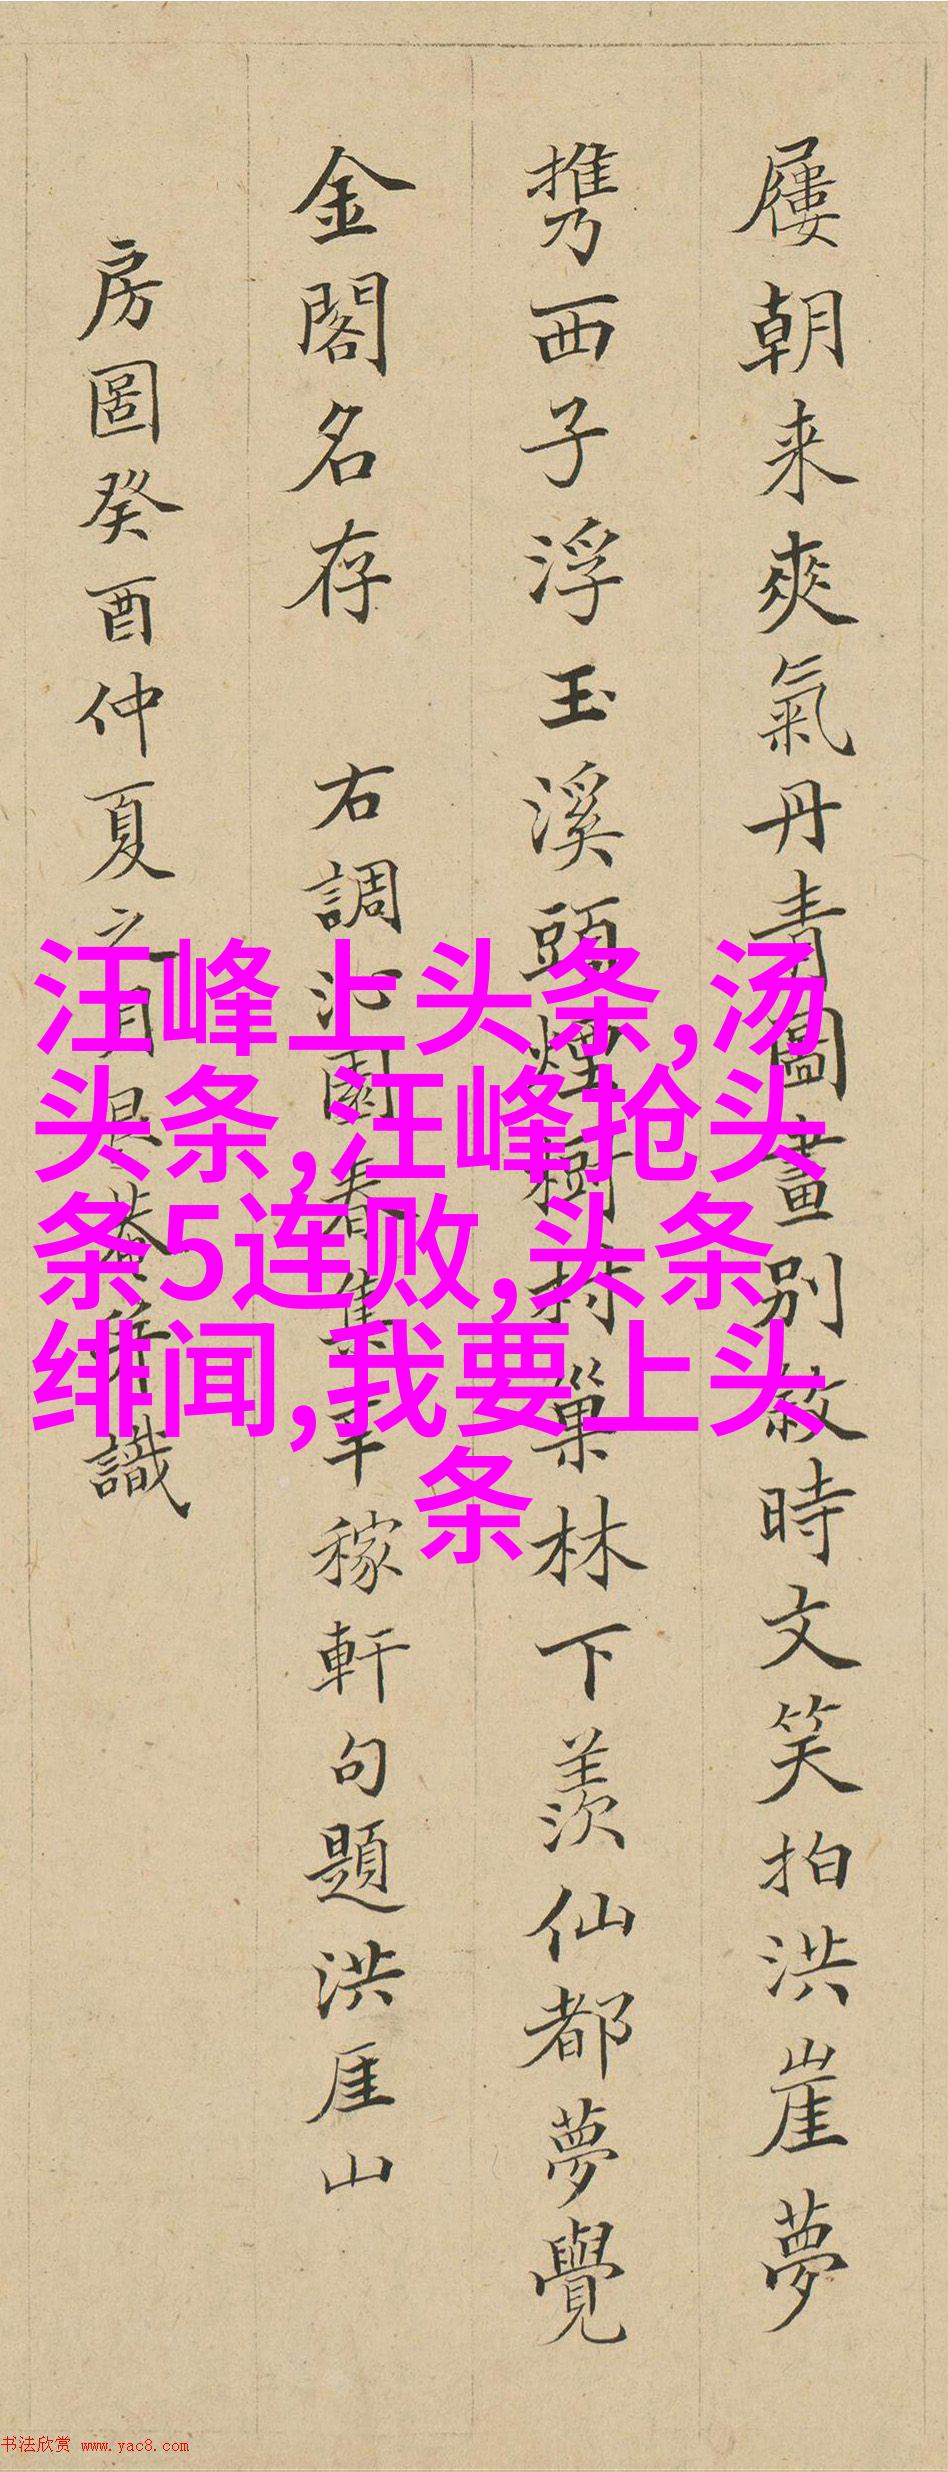 屨朝来爽氣丹青圖畫別敘時文笑拍洪崖夢
擕西子浮玉溪頭煙樹村巢林下羨仙都夢覺
金閣名存 右調沁園春集辛稼軒句題洪厓山
房圖癸酉仲夏之月 識
汪峰上头条,汤
头条,汪峰抢头
条5连败,头条
绯闻,我要上头
条
书法欣赏 www.yac8.com